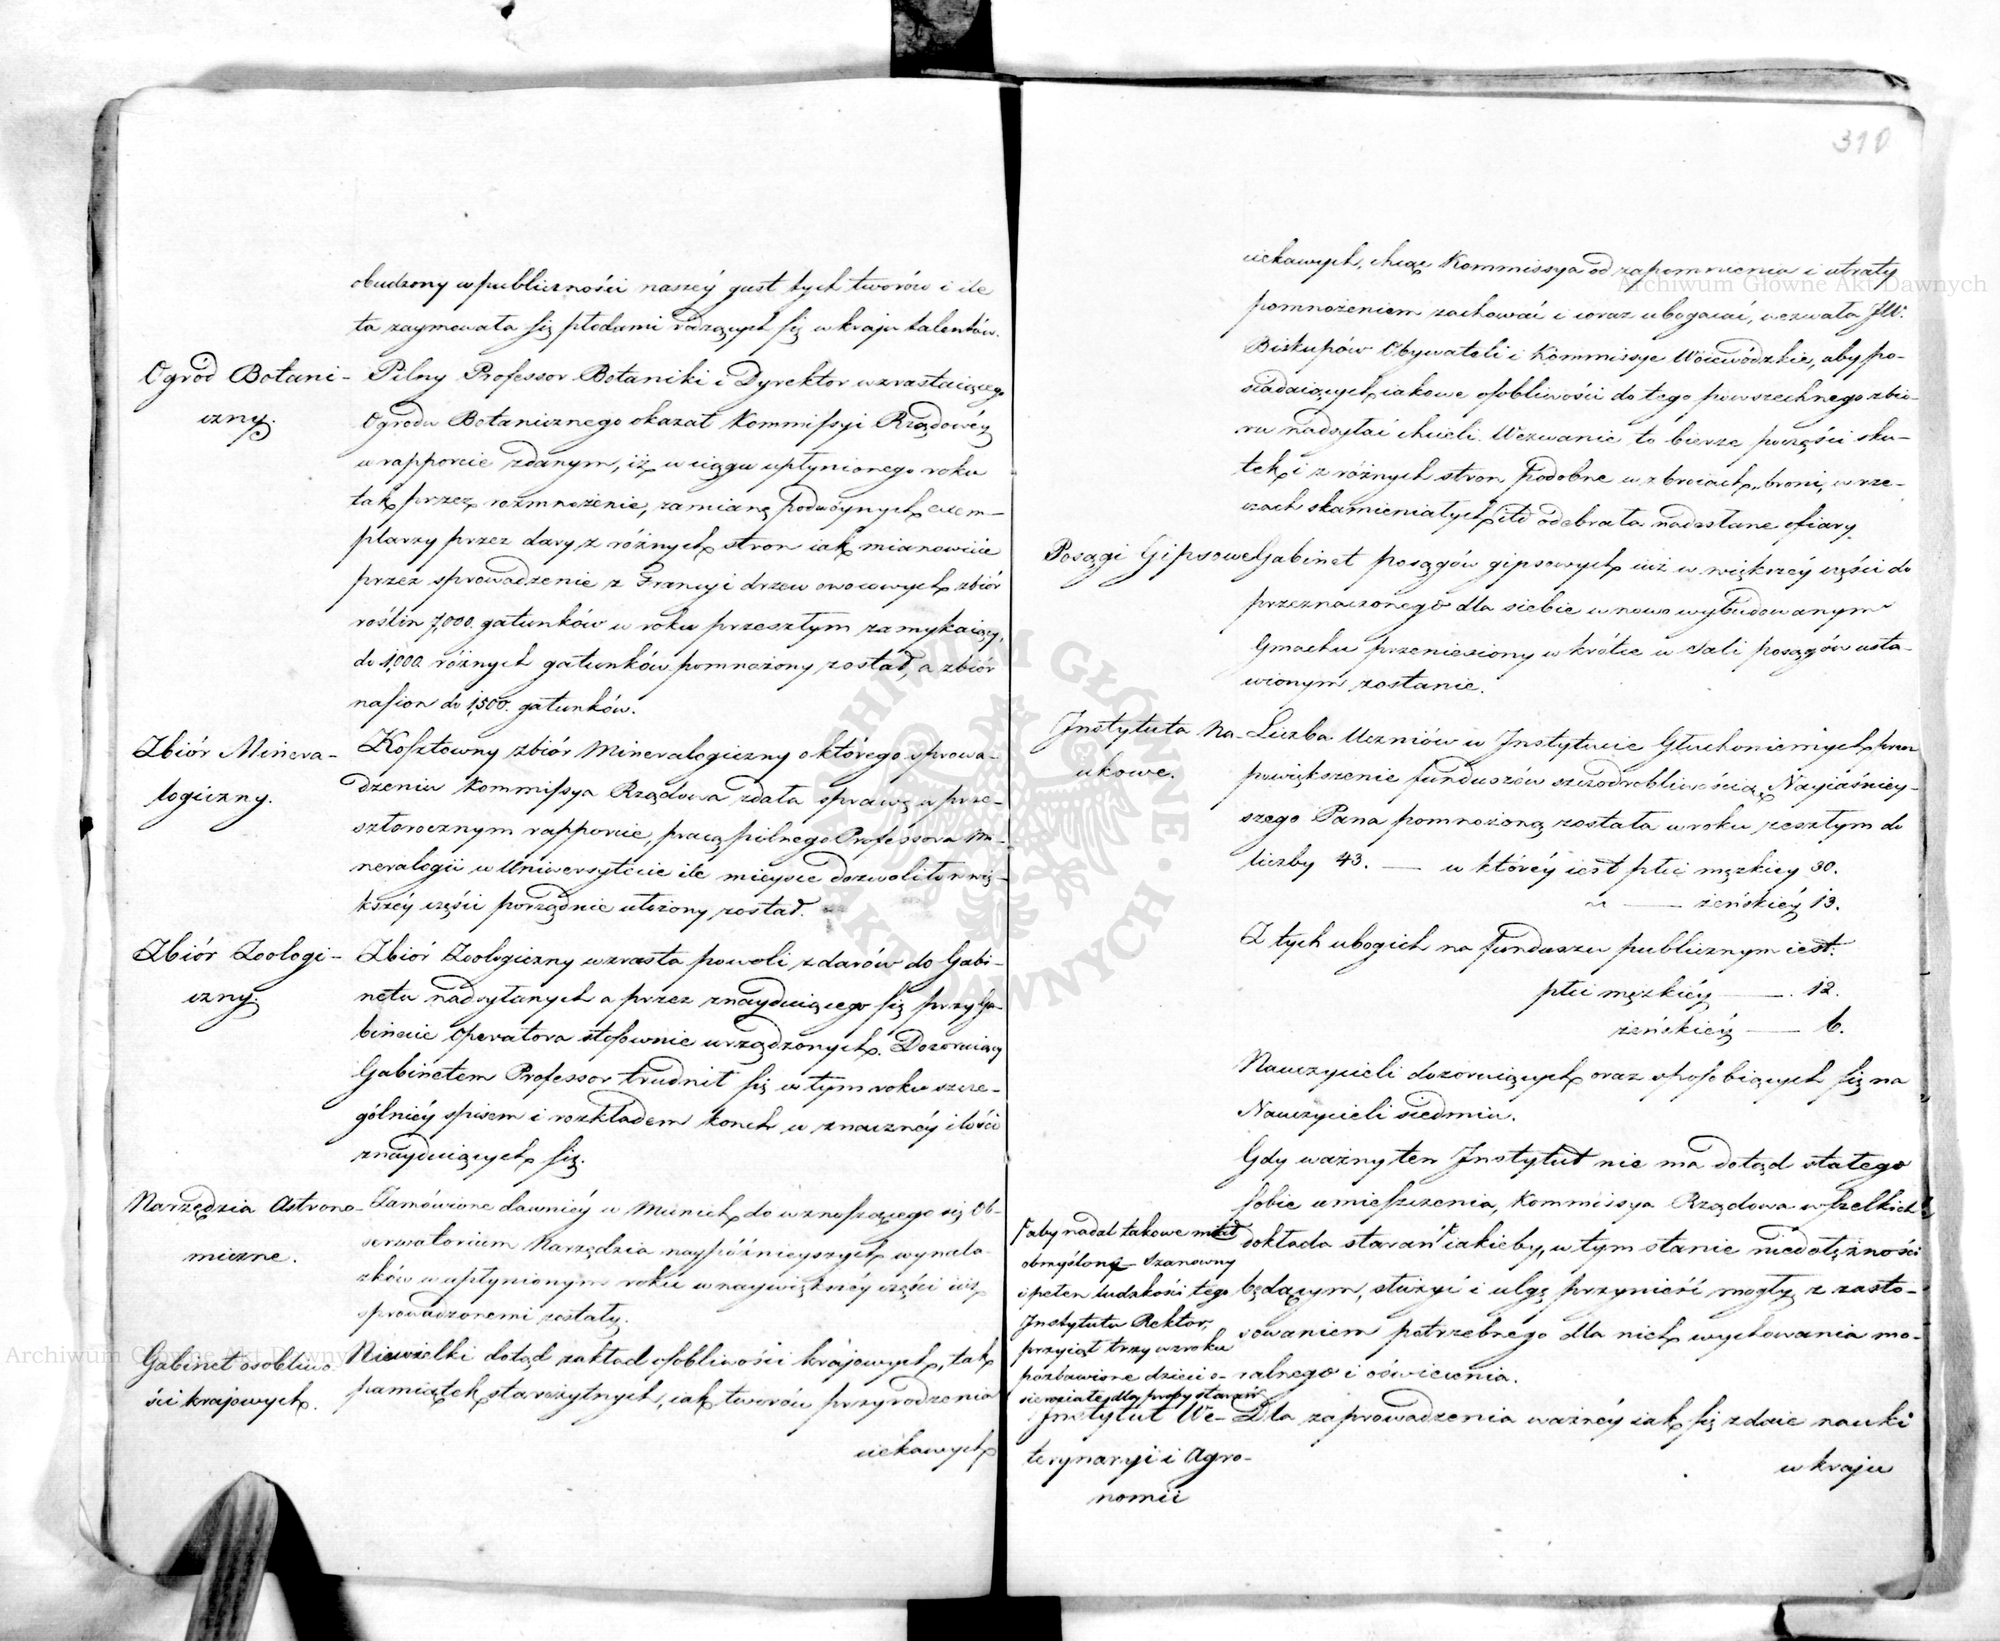 obudzony w publiczności naszéy gust tych tworów i ile
ta zaymowała się płodami rodzących się w kraju talentów.
Ogród Botani-
czny.
Pilny Professor Botaniki i Dyrektor wzrastaiącego
Ogrodu Botanicznego okazał Kommissyi Rządowéy
w rapporcie zdanym, iż w ciągu upłynionego roku
tak przez rozmnożenie, zamianę podwóynych exem-
plarzy przez dary z różnych stron iak mianowicie
przez sprowadzenie z Francyi drzew owocowych zbiór
roślin 7,000. gatunków w roku przeszłym zamykaiący,
do 1,000. różnych gatunków pomnożony został, a zbiór
nasion do 1,500. gatunków.
Zbiór Minera-
logiczny.
Kosztowny zbiór Mineralogiczny o którego sprowa-
dzeniu Kommissya Rządowa zdała sprawę w prze-
szłorocznym rapporcie, pracą pilnego Professora Mi-
neralogii w Uniwersytecie ile mieysce dozwoliło w wię-
kszéy części porządnie ułożony został.
Zbiór Zoologi-
czny.
Zbiór Zoologiczny wzrasta powoli z darów do Gabi-
netu nadsyłanych a przez znayduiącego się przy Ga-
binecie Operatora stosownie urządzonych. Dozoruiący
Gabinetem Professor trudnił się w tym roku szcze-
gólniéy spisem i rozkładem konch w znacznéy ilości
znayduiących się.
Narzędzia Astrono-
miczne.
Zamówione dawniéy w Munich do wznoszącego się Ob-
serwatorium Narzędzia naypóźnieyszych wynala-
zków w upłynionym roku w naywiększéy części iuż
sprowadzonemi zostały.
Gabinet osobliwo-
ści krajowych.
Niewielki dotąd zakład osobliwości krajowych, tak
pamiątek starożytnych, iak tworów przyrodzenia
ciekawych
310
ciekawych, chcąc Kommissya od zapomnienia i utraty
pomnożeniem zachować i coraz ubogacać, wezwała JW.
Biskupów Obywateli i Kommissye Woiewódzkie, aby po-
siadaiących iakowe osobliwości do tego powszechnego zbio-
ru nadsyłać chcieli. Wezwanie to bierze poczęści sku-
tek i z różnych stron podobne w zbroiach, broni, w rze-
czach skamieniałych itd odebrała nadesłane ofiary.
Posągi Gipsowe
Gabinet posągów gipsowych iuż w większéy części do
przeznaczonego dla siebie w nowo wybudowanym
Gmachu przeniesiony wkrótce w Sali posągów usta-
wionym zostanie.
Instytuta Na-
ukowe.
Liczba Uczniów w Instytucie Głuchoniemych przez
powiększenie funduszów szczodrobliwością Nayiaśniey-
szego Pana pomnożoną została w roku zeszłym do
liczby 43. — w któréy iest płci męzkiey 30.
„ — żeńskiéy 13.
Z tych ubogich na funduszu publicznym iest.
płci męzkiéy — . 12.
żeńskiéy — 6.
Nauczycieli dozoruiących oraz sposobiących się na
Nauczycieli siedmiu.
Gdy ważny ten Instytut nie ma dotąd stałego
sobie umieszczenia, Kommissya Rządowa wszelkich
dokłada starań iakieby, w tym stanie niedołężności
będącym, służyć i ulgę przynieść mogły z zasto-
sowaniem potrzebnego dla nich wychowania mo-
ralnego i oświecenia.
aby nadal takowe miał
obmyślone. Szanowny
i pełen ludzkości tego
Instytutu Rektor,
przyiął trzy wzroku
pozbawione dzieci o-
sierociałe dla próby starań
Instytut We-
terynaryi i Agro-
nomii
Dla zaprowadzenia ważnéy iak się zdaie nauki
w kraju